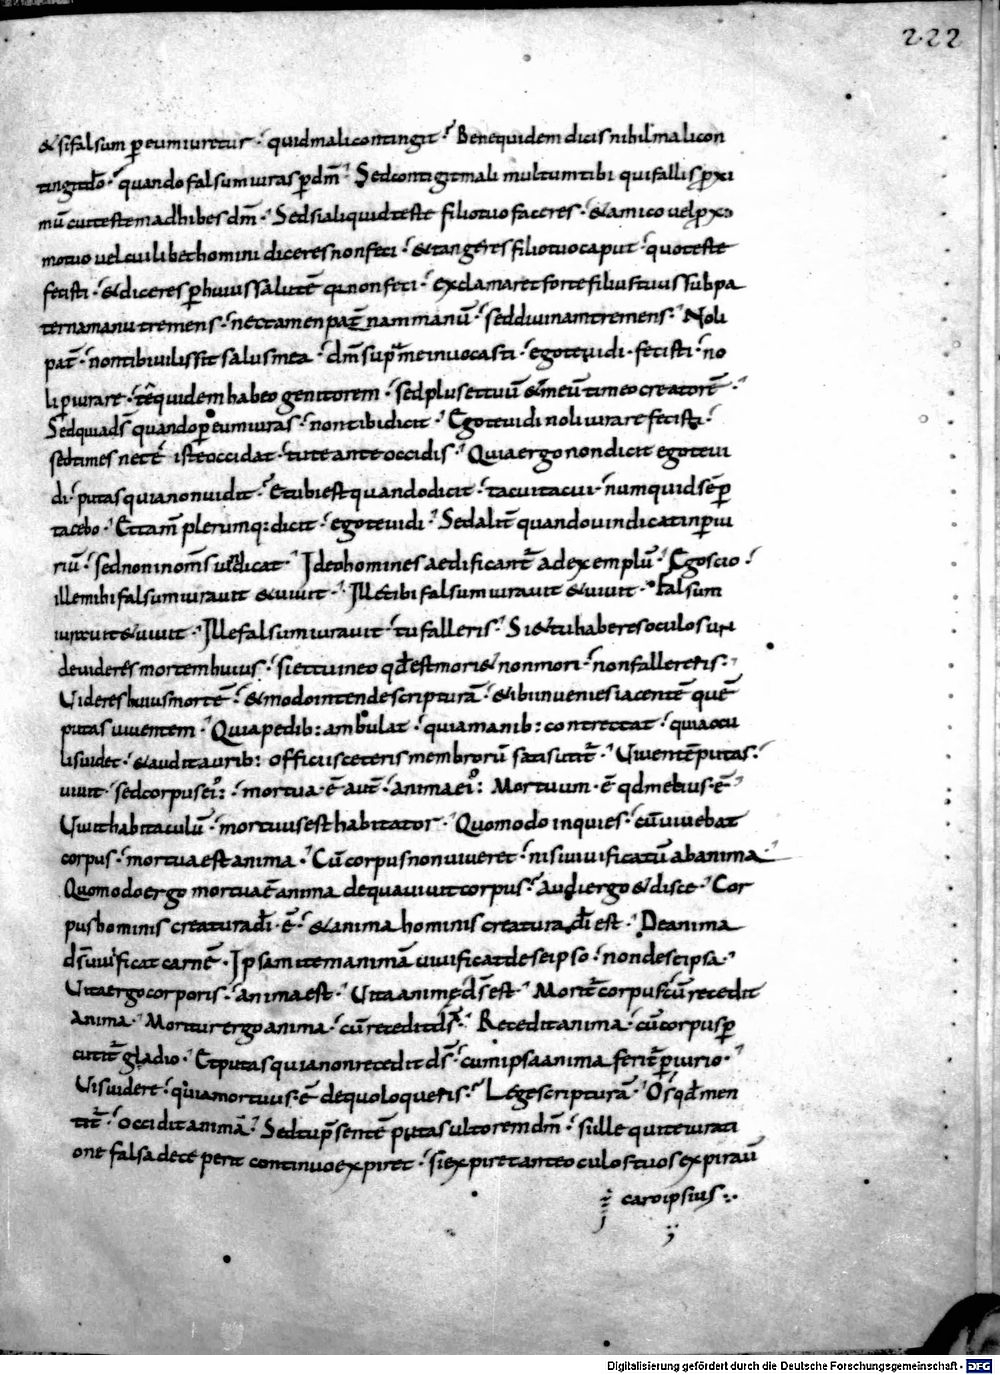 222
& si falsum p̱ eum iuretur · quid mali contingit · Bene quidem dicis nihil mali con
tingit dō · quando falsum iuras p̱ dm̄ · Sed contigit mali multum tibi qui fallis p̱xi
mū cui testem adhibes dm̄ · Sed si aliquid teste filio tuo faceres · & amico vel p̱xi
mo tuo vel cuilibet homini diceres non feci · & tangeres filio tuo caput · quo teste
fecisti · & diceres p̱ huius salutē q̄a non feci · exclamaret forte filius tuus sub pa
terna manu tremens · nec tamen pat̄nam manū · sed divinam tremens · Noli
pat̄ · non tibi vilis sit salus mea · dm̄ sup̄ me invocasti · ego te vidi · fecisti · no
li p̱iurare · tē quidem habeo genitorem · sed plus et tuū & meū timeo creatorē ·
Sed quia ds̄ quando p̱ eum iuras · non tibi dicit · Ego te vidi noli iurare fecisti ·
sed times ne te · iste occidat · tu te ante occidis · Quia ergo non dicit ego te vi
di · putas quia non vidit · Et ubi est quando dicit · tacui tacui · numquid sēp̱
tacebo · Et tam̄ plerumq: dicit · ego te vidi · Sed alit̄ quando vindicat in p̱iu
riū · sed non in om̄s vindicat · Ideo homines aedificant̄ ad exemplū · Ego scio
ille mihi falsum iuravit & vivit · Ille tibi falsum iuravit & vivit · Falsum
iuravit & vivit · Ille falsum iuravit · tu falleris · Si & tu haberes oculos un
de videres mortem huius · si et tu in eo qd̄ est mori & non mori · non fallereris ·
Videres huius mortē · & modo intende scripturā · & ibi invenies iacentē quē
putas viventem · Quia pedib: ambulat · quia manib: contrectat · quia ocu
lis videt · & audit aurib: officiis ceteris membrorū satis utit̄ · Viventē putas ·
vivit · sed corpus ei: · mortua · ē aut̄ · anima ei: Mortuum · ē qd melius · ē
Vivit habitaculū · mortuus est habitator · Quomodo inquies · cū vivebat
corpus · mortua est anima · Cū corpus non viveret · nisi vivificatū ab anima
Quomodo ergo mortua ē anima de qua vivit corpus · Audi ergo & disce · Cor
pus hominis creatura di · ē · & anima hominis creatura di est · De anima
ds̄ vivificat carnē · Ipsam item animā vivificat de se ipso · non de se ipsa ·
Vita ergo corporis · anima est · Vita animę ds̄ est · Morit̄ corpus cū recedit
anima · Moritur ergo anima · cū recedit ds̄ · Recedit anima · cū corpus p̱
cutit̄ gladio · Et putas quia non recedit ds̄ · cum ipsa anima ferit̄ p̱iurio ·
Vis videre · quia mortuus · ē de quo loqueris · Lege scripturā · Os qd̄ men
tit̄ · occidit animā · Sed tu p̄sentē putas ultorem dm̄ · si ille qui te iurati
one falsa deceperit continuo expiret · si expiret ante oculos tuos expiraū
caro ipsius
Digitalisierung gefördert durch die Deutsche Forschungsgemeinschaft · DFG